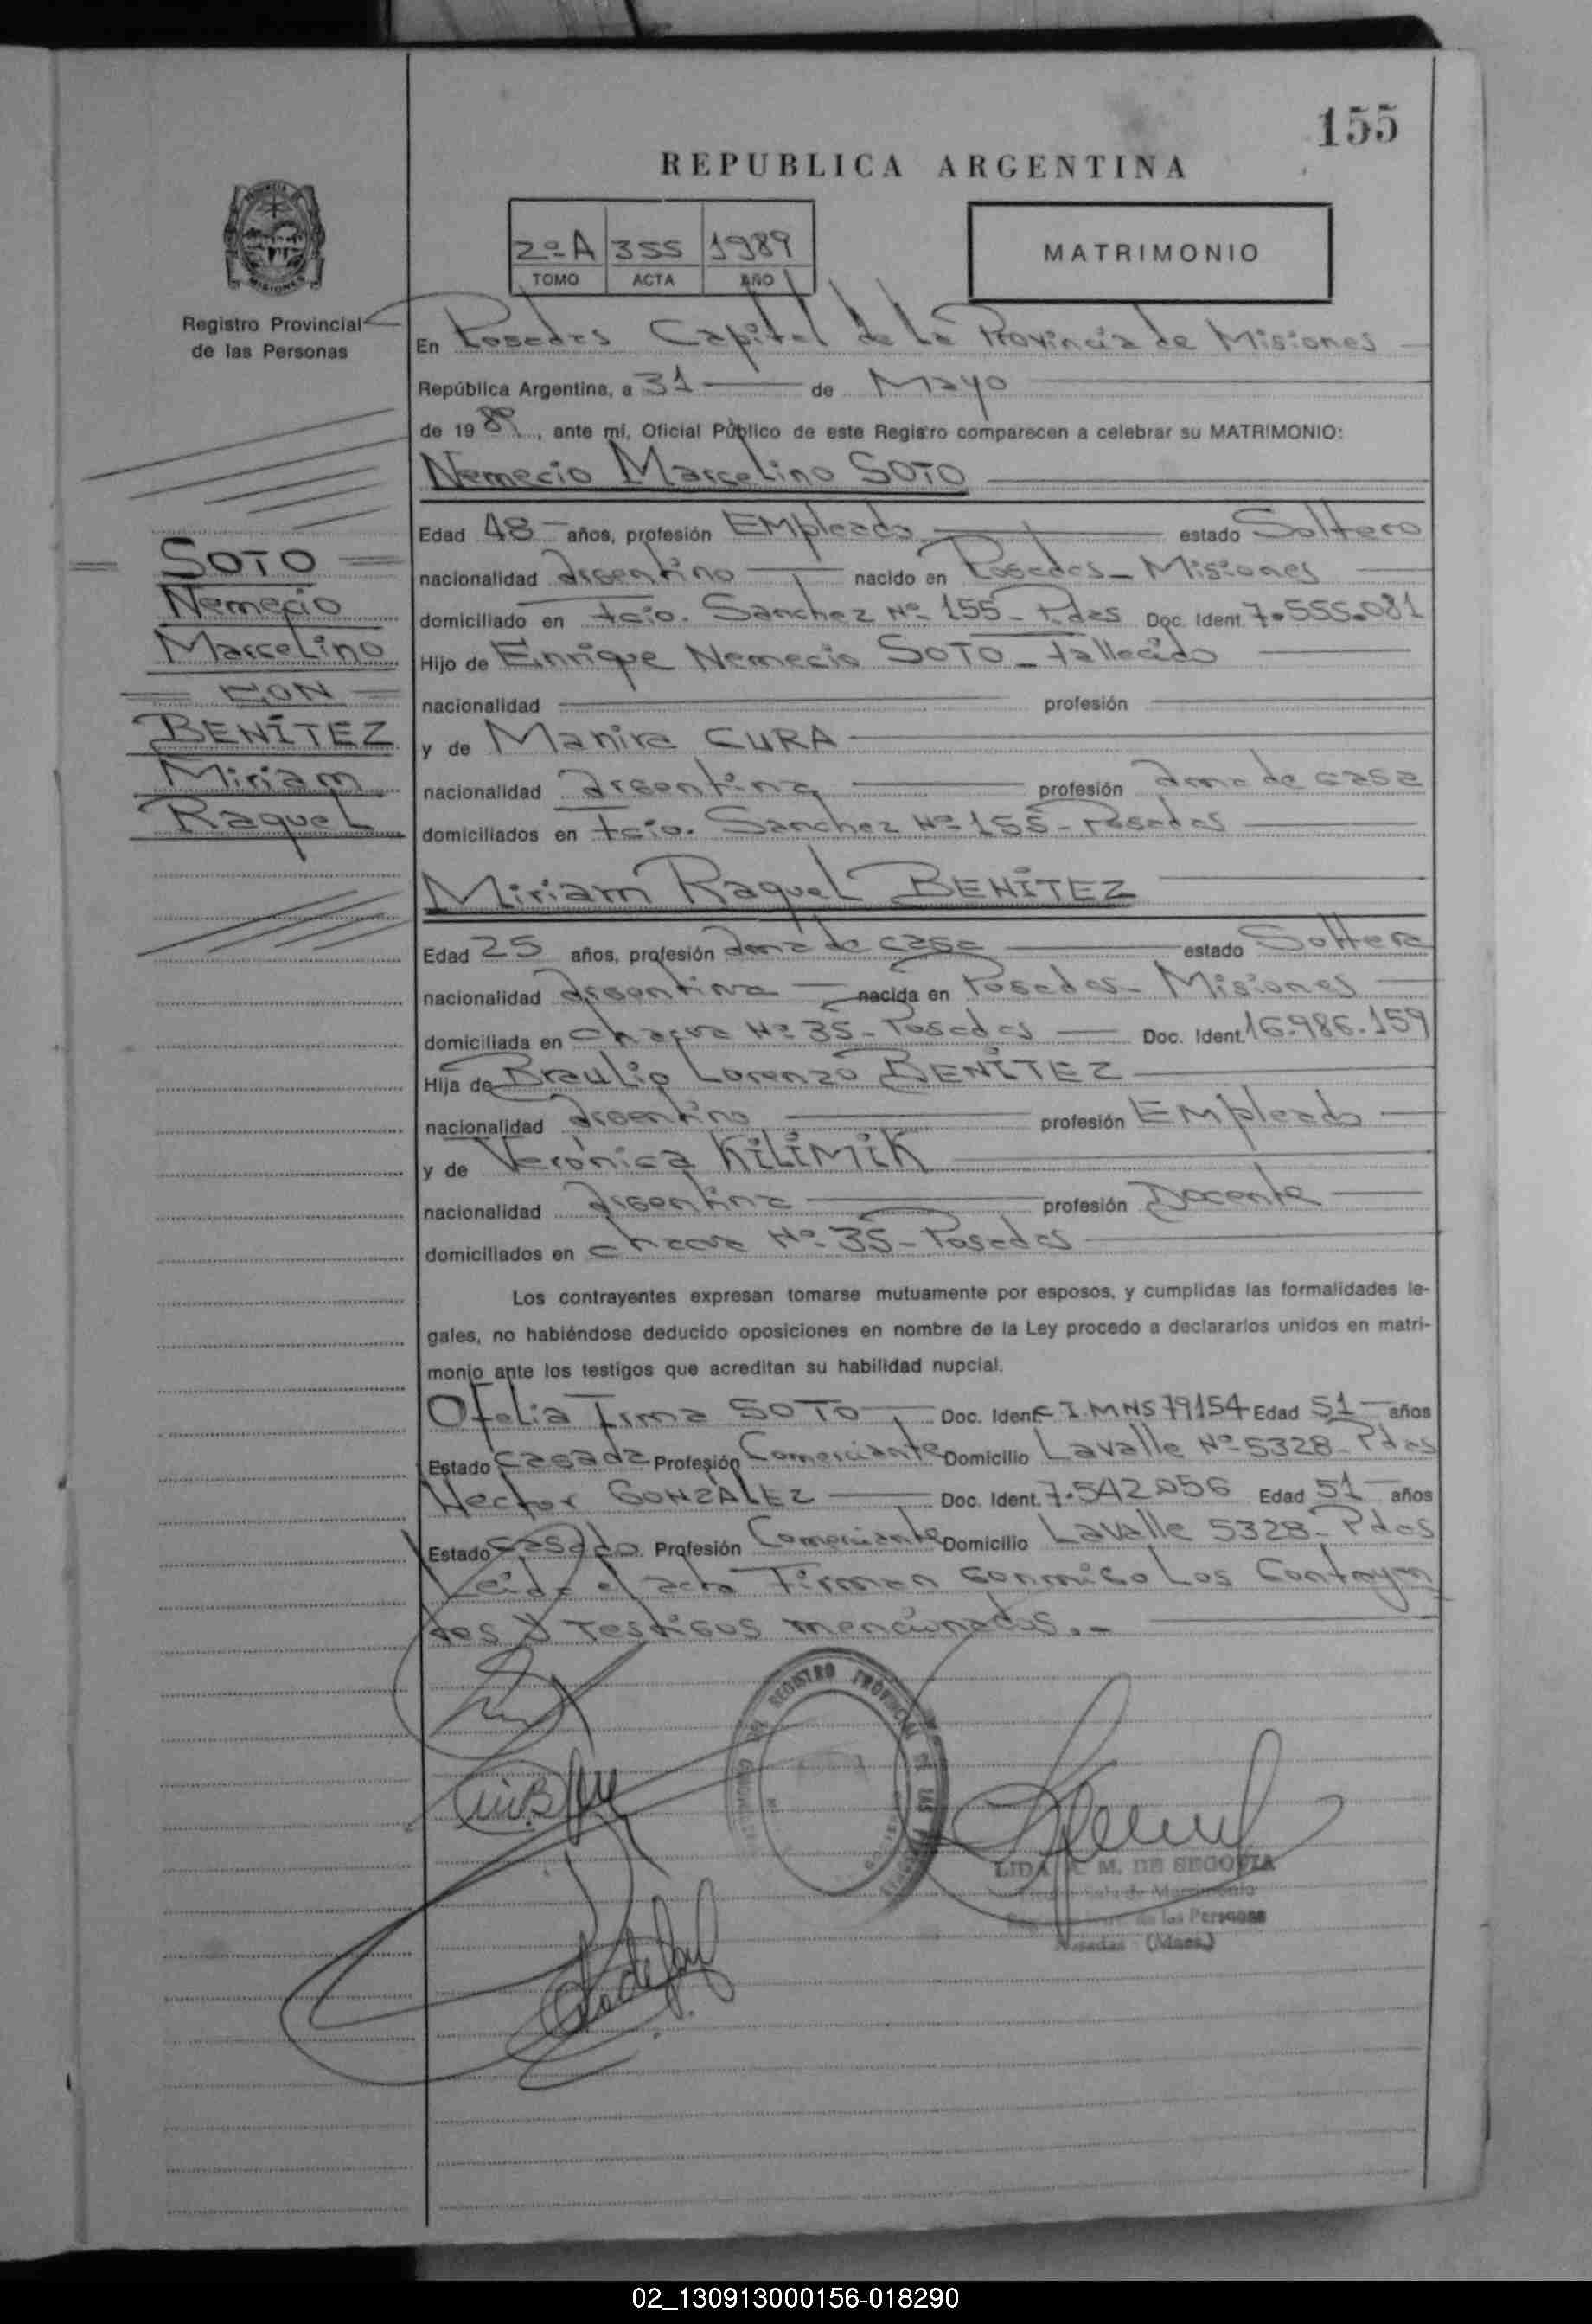 155
REPUBLICA ARGENTINA
2º A 355 1989
TOMO ACTA AÑO
MATRIMONIO
Registro Provincial
de las Personas
En Posadas Capital de La Provincia de Misiones
República Argentina, a 31 de Mayo
de 1989, ante mí, Oficial Público de este Registro comparecen a celebrar su MATRIMONIO:
Nemecio Marcelino SOTO
Edad 48 años, profesión Empleado estado Soltero
nacionalidad argentino nacido en Posadas - Misiones
domiciliado en Fcio. Sanchez Nº 155 - Pdas Doc. Ident. 7.555.081
Hijo de Enrique Nemecio SOTO - Fallecido
nacionalidad profesión
y de Manira CURA
nacionalidad argentina profesión ama de casa
domiciliados en Fcio. Sanchez Nº 155 - Posadas
SOTO
Nemecio
Marcelino
CON
BENÍTEZ
Miriam
Raquel
Miriam Raquel BENÍTEZ
Edad 25 años, profesión ama de casa estado Soltera
nacionalidad argentina nacida en Posadas - Misiones
domiciliada en chacra Nº 35 - Posadas Doc. Ident. 16.986.159
Hija de Braulio Lorenzo BENÍTEZ
nacionalidad argentino profesión Empleado
y de Verónica KILIMIK
nacionalidad argentina profesión Docente
domiciliados en chacra Nº 35 - Posadas
Los contrayentes expresan tomarse mutuamente por esposos, y cumplidas las formalidades le-
gales, no habiéndose deducido oposiciones en nombre de la Ley procedo a declararlos unidos en matri-
monio ante los testigos que acreditan su habilidad nupcial.
Ofelia Irma SOTO Doc. Ident. C.I. MNS 79154 Edad 51 años
Estado casada Profesión Comerciante Domicilio Lavalle Nº 5328 - Pdas
Hector GONZÁLEZ Doc. Ident. 7.542.056 Edad 51 años
Estado casado Profesión Comerciante Domicilio Lavalle 5328 - Pdas
Leida el acta Firman conmigo Los Contrayen
tes y Testigos mencionados.-
REGISTRO PROVINCIAL DE LAS
LIDA M. DE SEGOVIA
de las Personas
Posadas (Mnes.)
02_130913000156-018290